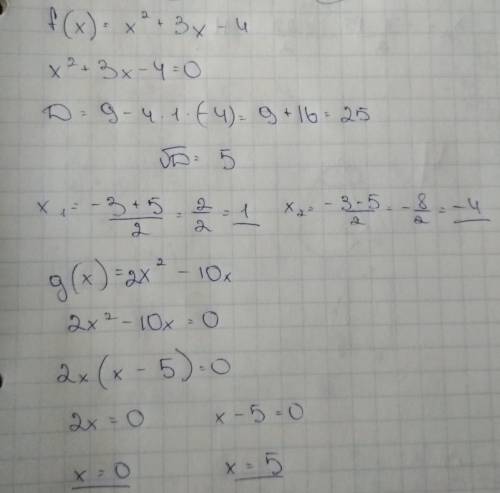 f(x) = x² + 3x - 4
x² + 3x - 4 = 0
D = 9 - 4 · 1 · (-4) = 9 + 16 = 25
√D = 5
x₁ = -3+5/2 = 2/2 = 1 x₂ = -3-5/2 = -8/2 = -4
g(x) = 2x² - 10x
2x² - 10x = 0
2x(x - 5) = 0
2x = 0 x - 5 = 0
x = 0 x = 5